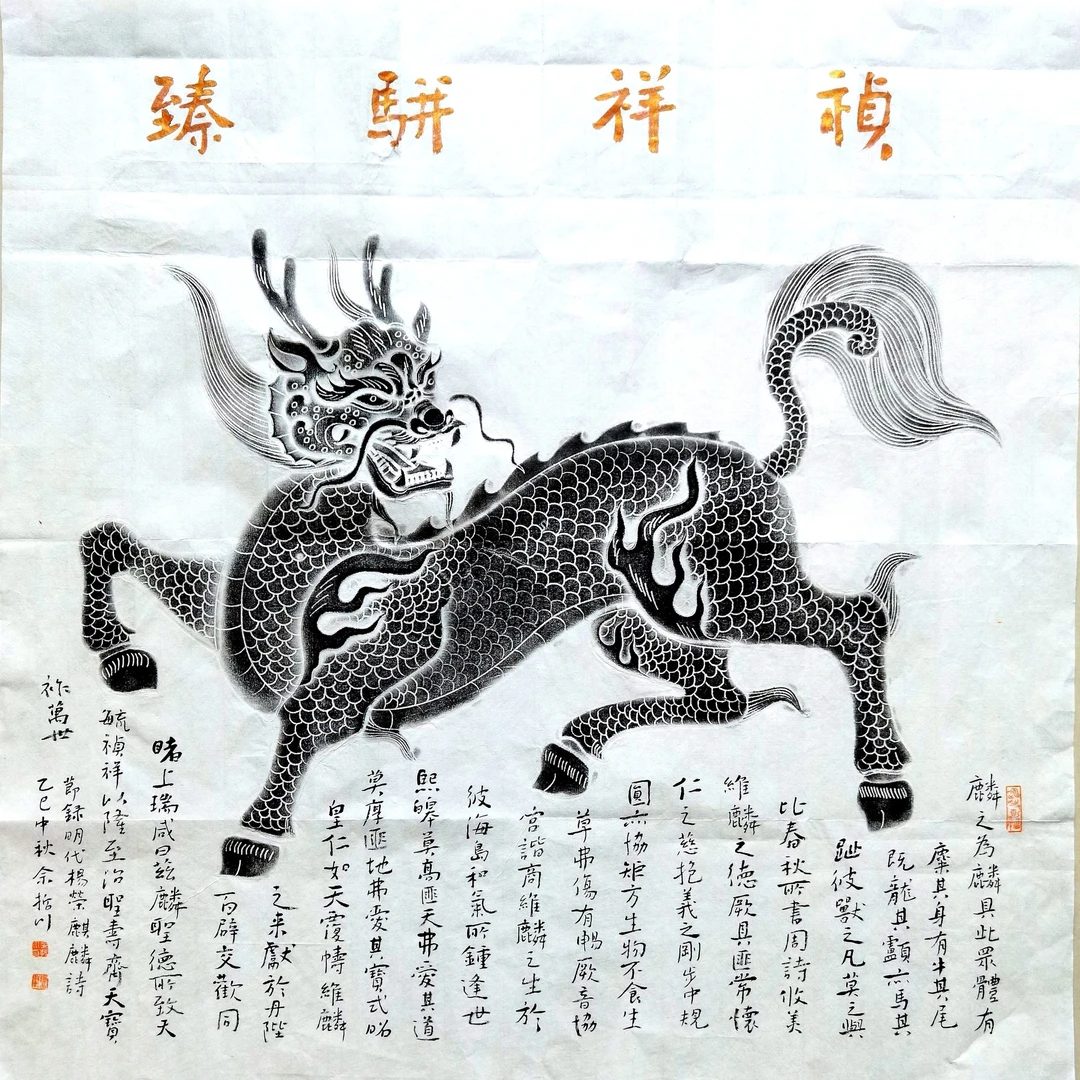 禎祥駢臻
麟之為麟具此眾體有
麋其身有牛其尾
既龍其顱亦馬其
趾彼獸之凡莫之與
比春秋所書周詩攸美
維麟之德厥具匪常懷
仁之慈抱義之剛步中規
圓亦協矩方生物不食生
草弗傷有暢厥音協
宮諧商維麟之生於
彼海島和氣所鍾逢世
熙皞莫高匪天弗愛其道
莫厚匪地弗愛其寶式昭
皇仁如天覆幬維麟
之来獻於丹陛
百辟交歡同
睹上瑞咸曰茲麟聖德所致天
毓禎祥以隆至治聖壽齊天寶
祚萬世
節録明代楊榮麒麟詩
乙巳中秋余